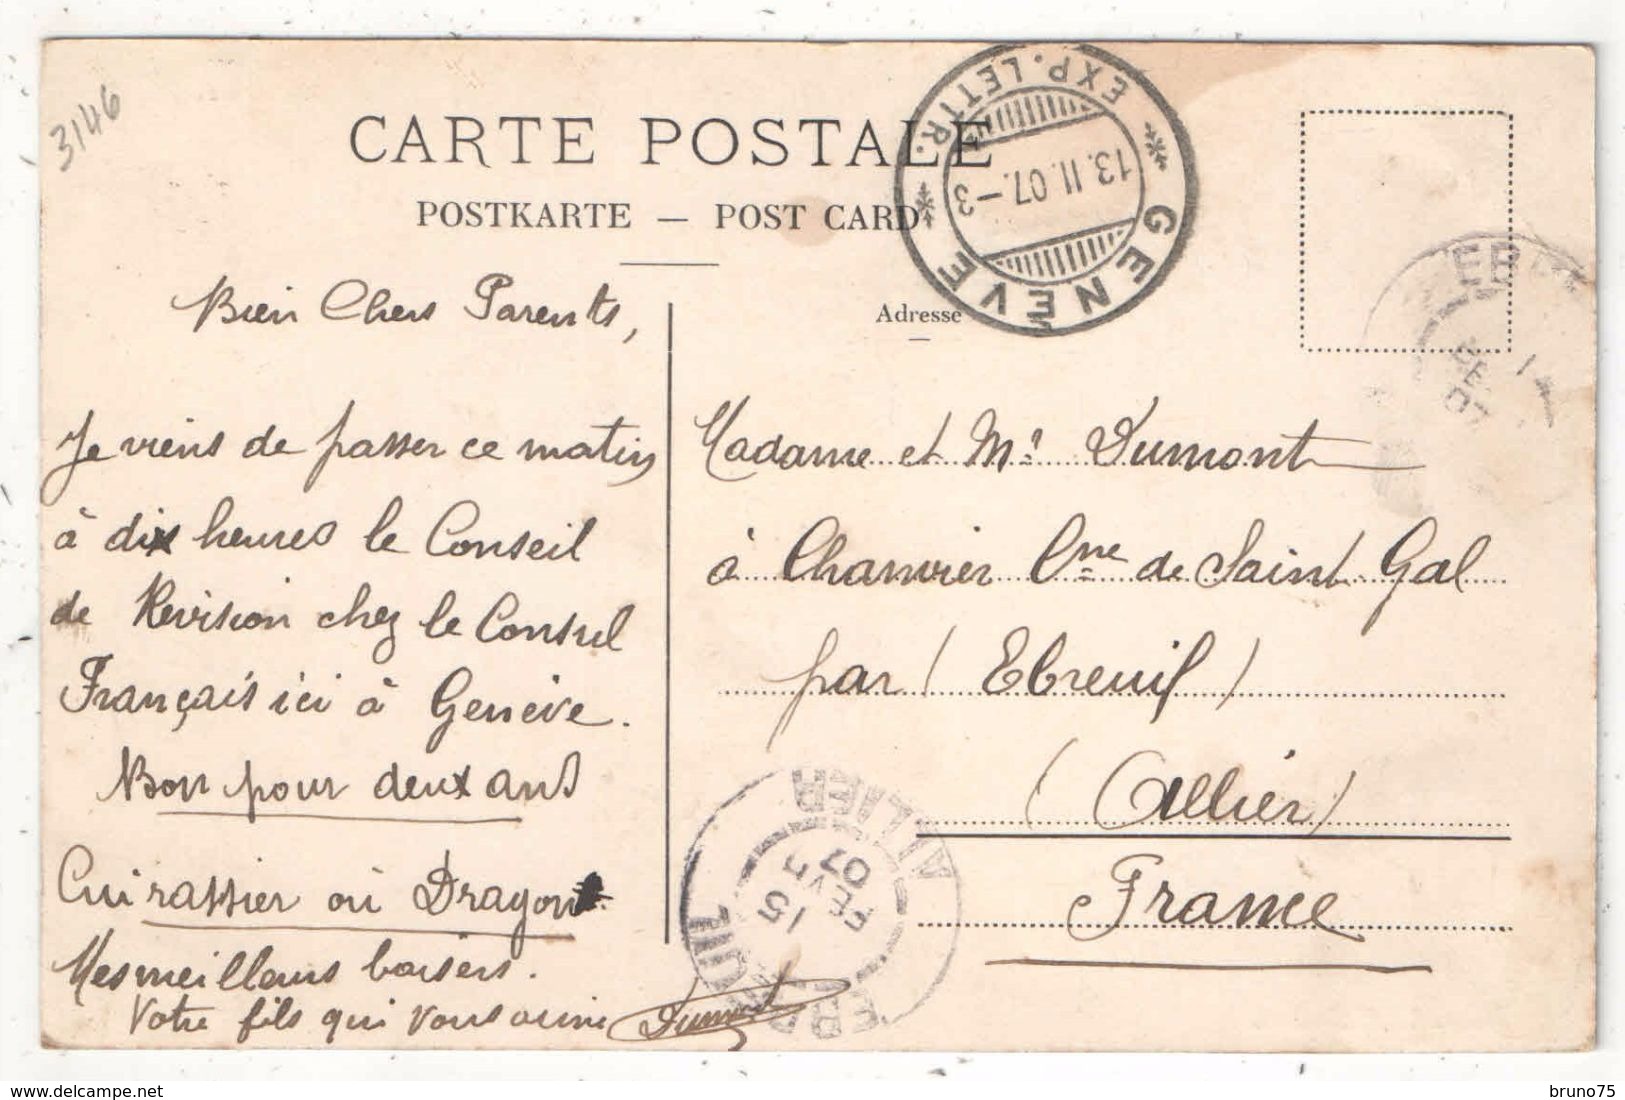 3146
CARTE POSTALE
POSTKARTE — POST CARD
EXP. LETTR.
13.II.07.–3
GENÈVE
Bien Chers Parents,
Je viens de passer ce matin
à dix heures le Conseil
de Revision chez le Consul
Français ici à Genève.
Bon pour deux ans
Cuirassier ou Dragon
Mes meilleurs baisers.
Votre fils qui vous aime Dumont
Adresse
Madame et Mr Dumont
à Chanvier Cne de Saint Gal
par (Ebreuil)
(Allier)
France
EBREUIL
ALLIER
15
FEVR
07
EBR
07
bruno75